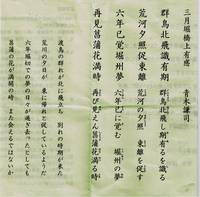 三月堀橋上有感　青木謙司
群鳥北飛識有期
荒河夕照促東離
六年已覚堀州夢
再見菖蒲花満時
群鳥北飛し期有るを識る
荒河の夕照　東離を促す
六年已に覚む　堀州の夢
再び見えん菖蒲花満る時
渡鳥の群れが北に飛立ち　別れの時期が来た
荒川の夕日が　東に帰れと促しているようだ
六年堀切での夢の日々が過ぎ去っても
菖蒲の花が満開の時、また会えるではないか